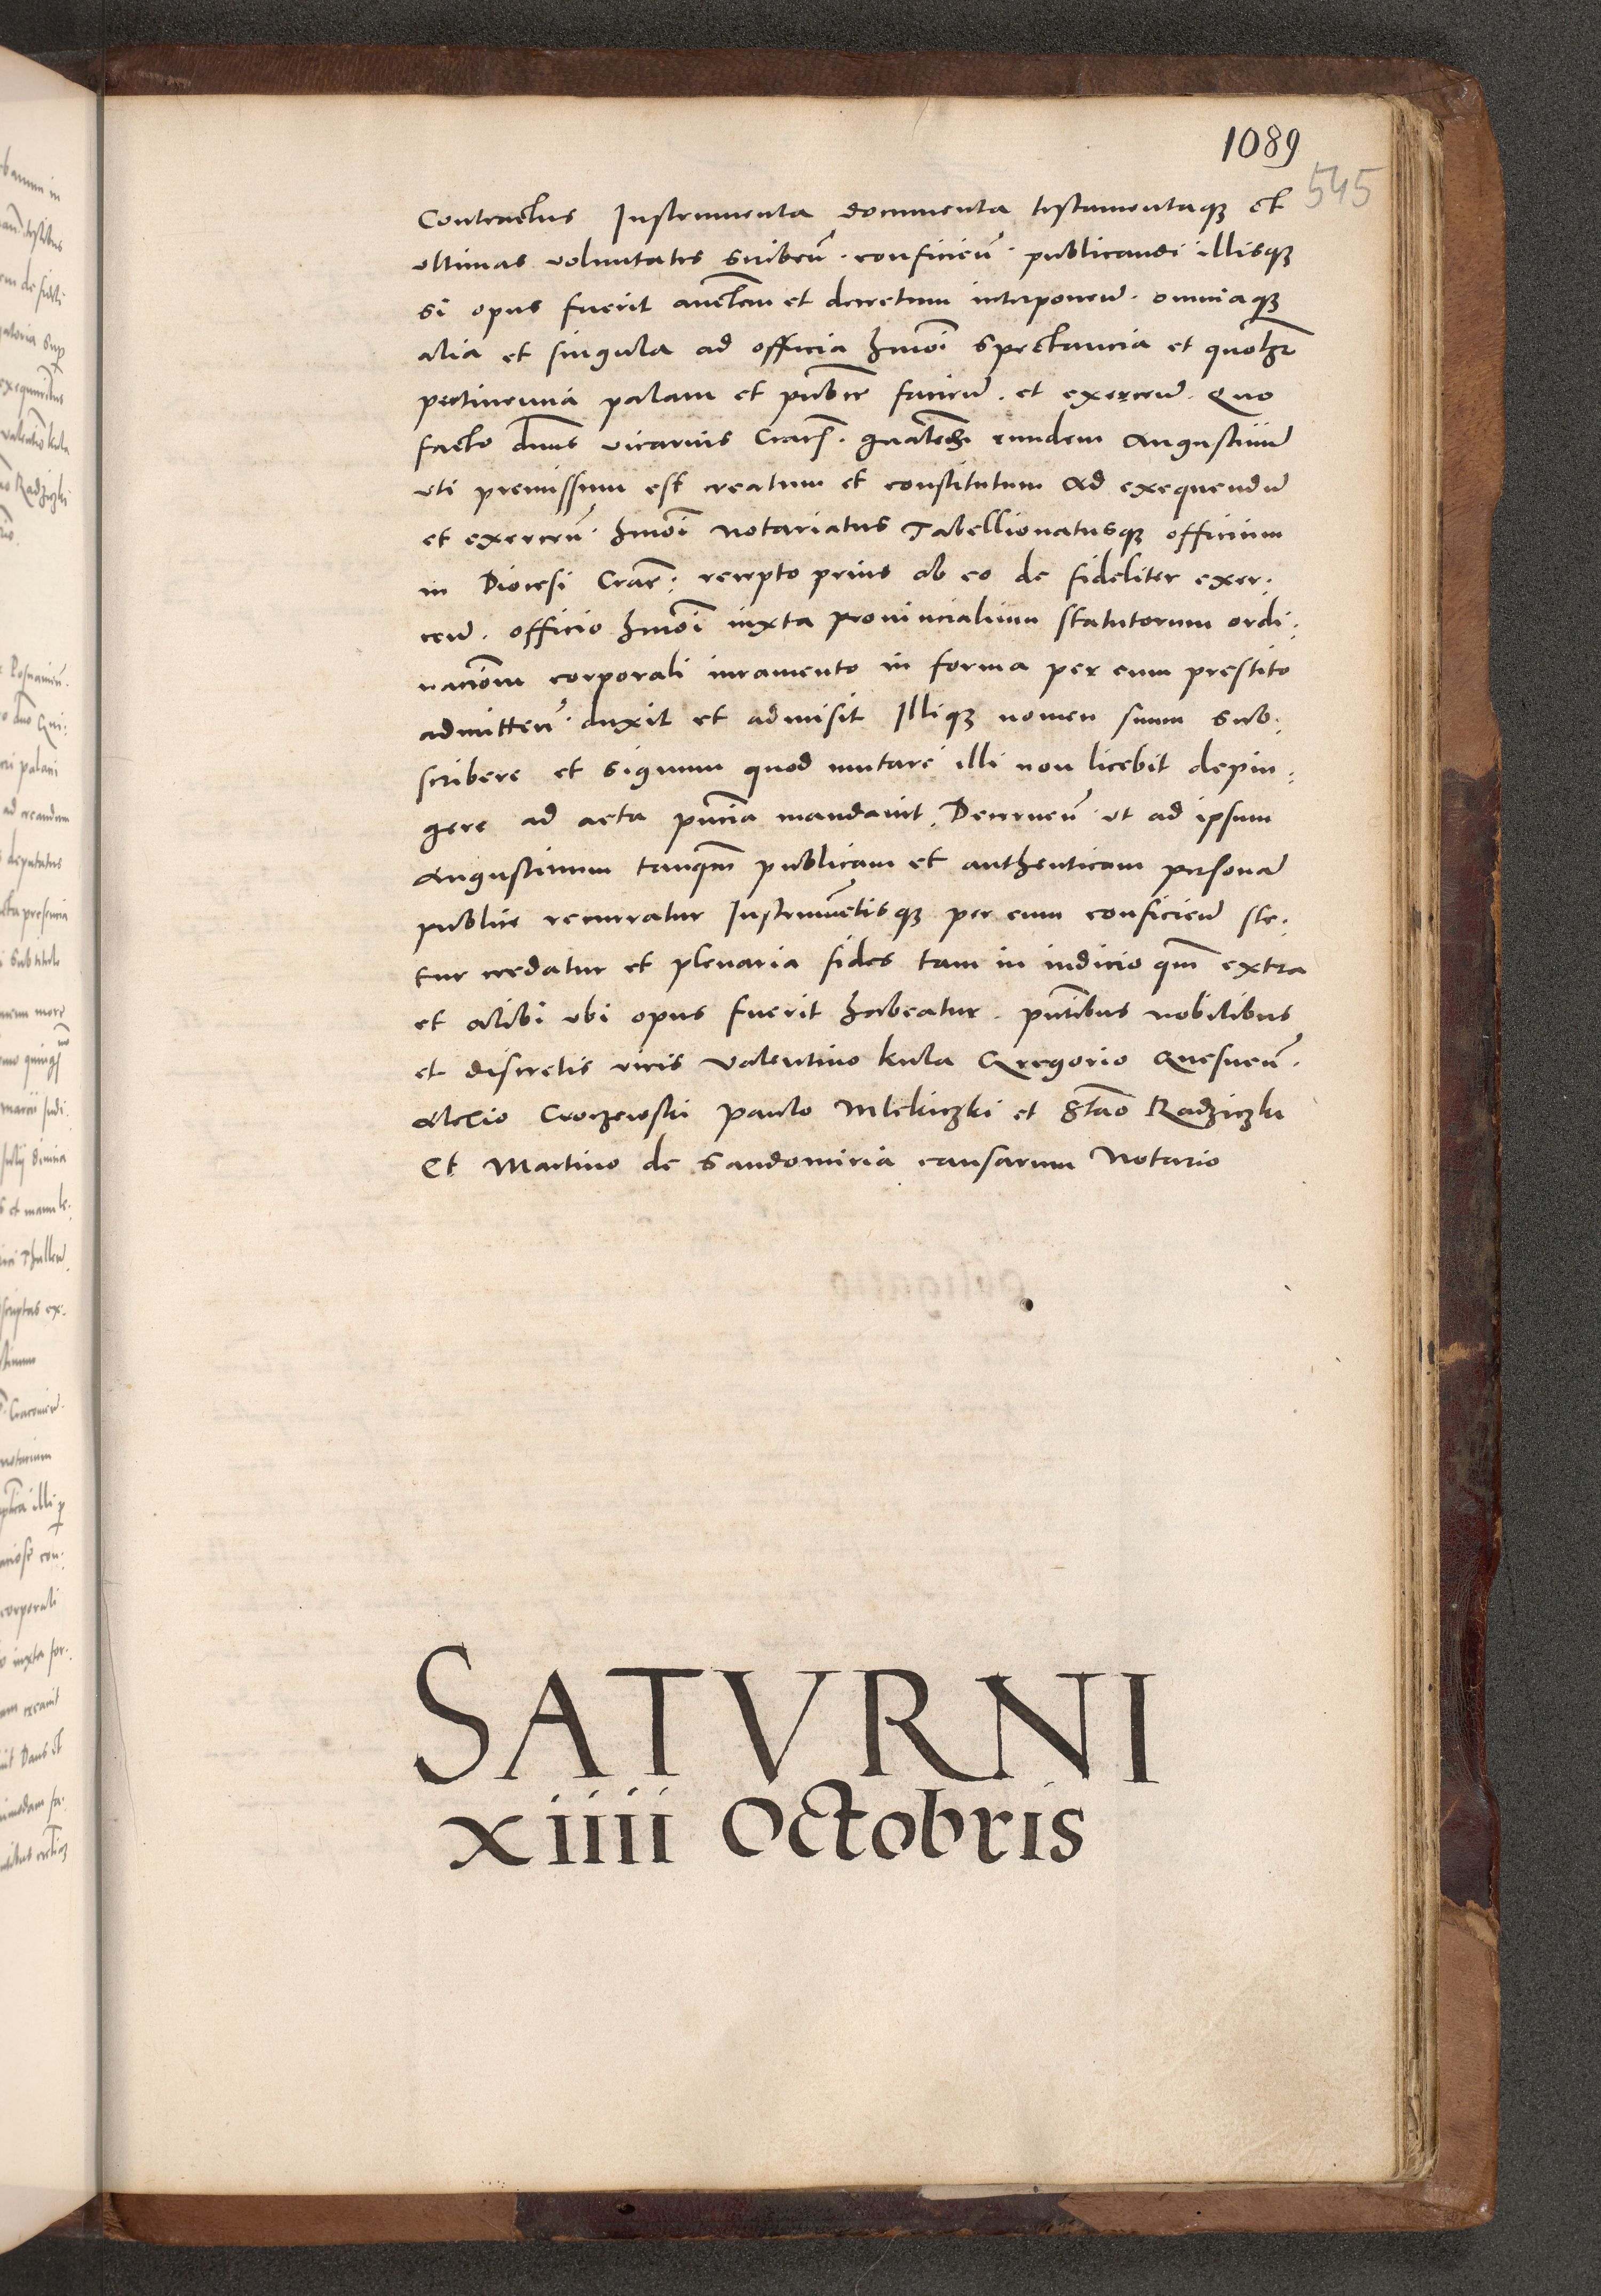 1089
545
Contractus Instrumenta documenta testamentaque et
ultimas voluntates scribeñ. conficieñ. publicandi illisque
si opus fuerit auctem et decretum interponeñ. omniaque
alia et singula ad officia hmoi spectancia et
pertinencia palam et publice facieñ. et exerceñ. Quo
facto dnus vicarius Cracs. eundem Augustinũ
uti premissum est creatum et constitutum ad exequendũ
et exerceñ. hmoi notariatus Tabellionatusque officium
in Diocesi Crac. recepto prius ab eo de fideliter exer:
ceñ. officio hmoi iuxta provincialium statutorum ordi:
nacionem corporali iuramento in forma per eum prestito
admitteñ. duxit et admisit Illique nomen suum sub:
scribere et signum quod mutare illi non licebit depin:
gere ad acta pñcia mandavit. Decerneñ. ut ad ipsum
Augustinum tanqm publicam et authenticam personã
publice recurratur Instrumẽtisque per eum conficieñ ste:
tur credatur et plenaria fides tam in iudicio qm extra
et alibi ubi opus fuerit habeatur. pñtibus nobilibus
et discretis viris Valentino Kula Gregorio Gnesneñ.
Alexio Croczewski Paulo Mlekiczki et Stao Radziczki
Et Martino de Sandomiria causarum Notario
SATVRNI
xiiii Octobris